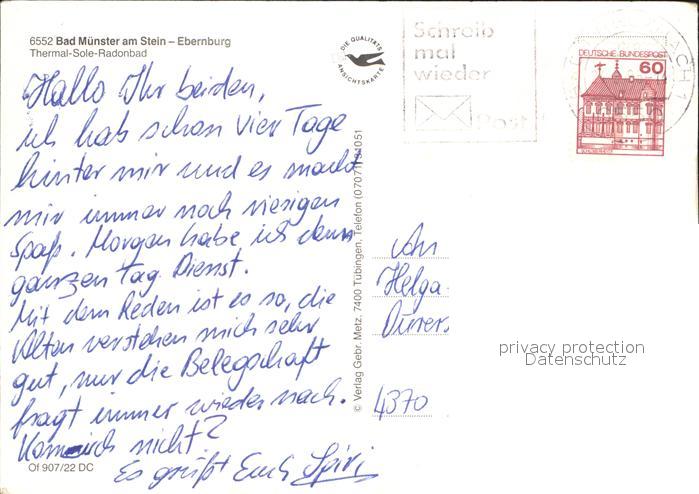 6552 Bad Münster am Stein – Ebernburg
Thermal-Sole-Radonbad
Hallo Ihr beiden,
ich hab schon vier Tage
hinter mir und es macht
mir immer noch riesigen
Spaß. Morgen habe ich dann
ganzen Tag Dienst.
Mit dem Reden ist es so, die
Alten verstehen mich sehr
gut, nur die Belegschaft
fragt immer wieder nach.
Komisch nicht?
Es grüßt Euch
Of 907/22 DC
DIE QUALITÄTS
ANSICHTSKARTE
© Verlag Gebr. Metz, 7400 Tübingen, Telefon (07071)
Schreib
mal
wieder
Post
DEUTSCHE BUNDESPOST
60
An
Helga
4370
privacy protection
Datenschutz